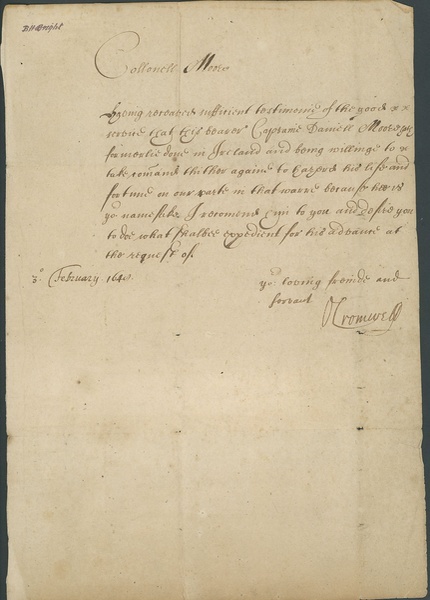 BHBright
Collonell Moore
Having receaved sufficient testimonie of the good
service that this bearer Captaine Daniell Moore hath
formerlie done in Ireland and being willinge to
take comand thither againe to hazard his life and
fortune on our parte in that warre because hee is
yo namesake. I recomend him to you and desire you
to doe what shalbee expedient for his advance at
the request of.
3º February 164
yo loving freinde and
servant
OCromwell